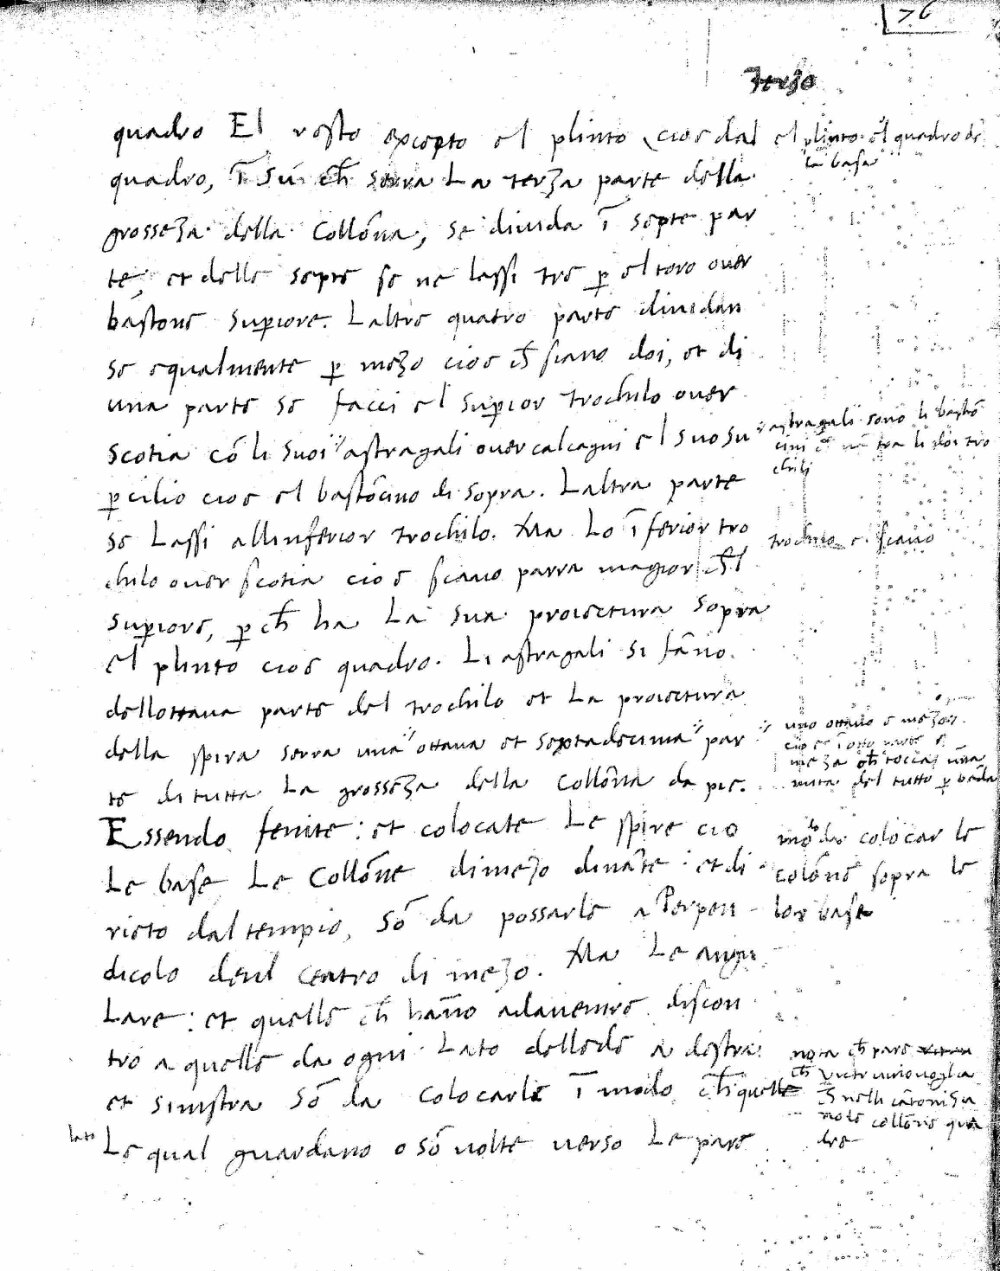 76
Terzo
quadro El resto excepto el plinto cioe dal
quadro, ī sú ch̄ serra La terza parte della
grosseza della Collōna, se diuida ī septe par
te, et delle septe se ne lassi tre p̱ el toro ouer
bastone sup̱iore. Laltre quatro parte diuidan
se equalmente p̱ mezo cioe ch̄ siano doi, et di
una parte se facci el sup̱ior trochilo ouer
scotia cō li suoi " astragali ouer calcagni el suo su
p̱cilio cioe el bastōcino di sopra. Laltra parte
se Lassi allinferior trochilo. Ma Lo īferior tro
chilo ouer scotia cioe scauo parra magior ch̄l
sup̱iore, p̱ ch̄ ha La sua proiectura sopra
el plinto cioe quadro. Li astragali si fāno
dellottaua parte del trochilo et La proiectura
della spira serra una " ottaua et sextadecima " par
te di tutta La grosseza della Collōna da pie.
Essendo fenite: et colocate Le spire cio
Le base Le Collōne di mezo dināte et di
rieto dal tempio, Sō da possarle a Perpen
dicolo del centro di mezo. Ma Le angu
Lare: et quelle ch̄ hāno adauenire discon
tro a quelle da ogni Lato delle de a destra
et sinistra Sō da colocarle ī modo ch̄ quelle
lato Le qual guardano o sō uolte uerso Le pare
el plinto el quadro de
la basa
" astragali sono li bastō
cini ch̄ tra li doi tro
chili
trochilo e scauo
" uno ottauo e mezo
cioe ī otto parte e
meza ch̄ tocca una
nura del tutto p̱ banda
modo colocar le
colōne sopra le
lor base
nota ch̄ pare
ch̄ Victruuio uoglia
ch̄ nelli cātoni si
mete collōne qua
dre